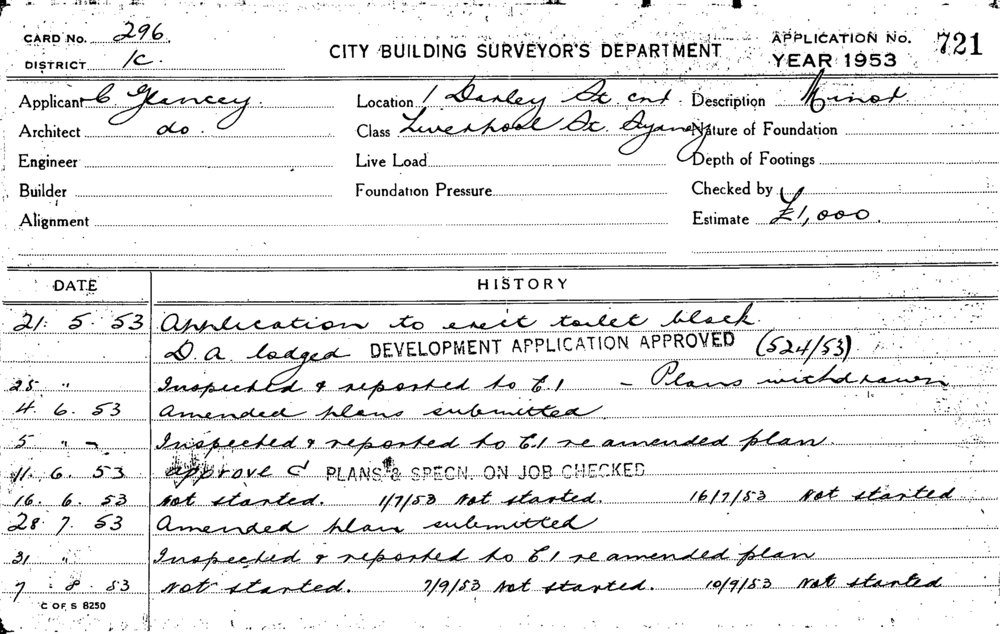 CARD No. 296. CITY BUILDING SURVEYOR'S DEPARTMENT APPLICATION No. 721
DISTRICT 1C. YEAR 1953
Applicant C Glancey. Location 1 Darley St cnr Description Minor
Architect do. Class Liverpool St. Sydney Nature of Foundation
Engineer Live Load Depth of Footings
Builder Foundation Pressure Checked by
Alignment Estimate £1,000.
DATE HISTORY
21. 5. 53 Application to erect toilet block.
D.A. lodged DEVELOPMENT APPLICATION APPROVED (524/53)
25 " Inspected & reported to E.1 - Plans withdrawn
4. 6. 53 Amended plans submitted.
5 " - Inspected & reported to E.1 re amended plan.
11. 6. 53 approved PLANS & SPECN. ON JOB CHECKED
16. 6. 53 Not started. 1/7/53 Not started. 16/7/53 Not started
28. 7. 53 Amended plan submitted
31 " Inspected & reported to E.1 re amended plan
7. 8. 53 Not started. 7/9/53 Not started. 10/9/53 Not started
C OF S 8250